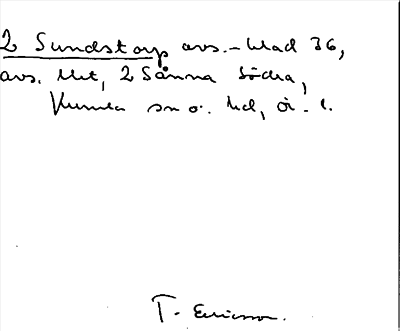 2 Sundstorp avs. - blad 36,
avs. Utt, 2 Sånna Södra,
Kumla sn o. hd, ör. l.
T. Ericsson.